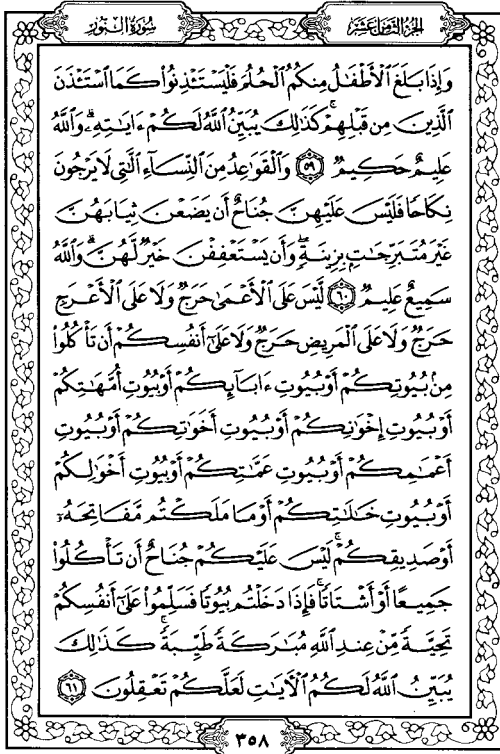 الجزء الثامن عشر
سورة النور
وَإِذَا بَلَغَ ٱلْأَطْفَٰلُ مِنكُمُ ٱلْحُلُمَ فَلْيَسْتَـْٔذِنُوا۟ كَمَا ٱسْتَـْٔذَنَ
ٱلَّذِينَ مِن قَبْلِهِمْ ۚ كَذَٰلِكَ يُبَيِّنُ ٱللَّهُ لَكُمْ ءَايَٰتِهِۦ ۗ وَٱللَّهُ
عَلِيمٌ حَكِيمٌ ٥٩ وَٱلْقَوَٰعِدُ مِنَ ٱلنِّسَآءِ ٱلَّٰتِى لَا يَرْجُونَ
نِكَاحًا فَلَيْسَ عَلَيْهِنَّ جُنَاحٌ أَن يَضَعْنَ ثِيَابَهُنَّ
غَيْرَ مُتَبَرِّجَٰتٍۭ بِزِينَةٍ ۖ وَأَن يَسْتَعْفِفْنَ خَيْرٌ لَّهُنَّ ۗ وَٱللَّهُ
سَمِيعٌ عَلِيمٌ ٦٠ لَّيْسَ عَلَى ٱلْأَعْمَىٰ حَرَجٌ وَلَا عَلَى ٱلْأَعْرَجِ
حَرَجٌ وَلَا عَلَى ٱلْمَرِيضِ حَرَجٌ وَلَا عَلَىٰٓ أَنفُسِكُمْ أَن تَأْكُلُوا۟
مِنۢ بُيُوتِكُمْ أَوْ بُيُوتِ ءَابَآئِكُمْ أَوْ بُيُوتِ أُمَّهَٰتِكُمْ
أَوْ بُيُوتِ إِخْوَٰنِكُمْ أَوْ بُيُوتِ أَخَوَٰتِكُمْ أَوْ بُيُوتِ
أَعْمَٰمِكُمْ أَوْ بُيُوتِ عَمَّٰتِكُمْ أَوْ بُيُوتِ أَخْوَٰلِكُمْ
أَوْ بُيُوتِ خَٰلَٰتِكُمْ أَوْ مَا مَلَكْتُم مَّفَاتِحَهُۥٓ
أَوْ صَدِيقِكُمْ ۚ لَيْسَ عَلَيْكُمْ جُنَاحٌ أَن تَأْكُلُوا۟
جَمِيعًا أَوْ أَشْتَاتًا ۚ فَإِذَا دَخَلْتُم بُيُوتًا فَسَلِّمُوا۟ عَلَىٰٓ أَنفُسِكُمْ
تَحِيَّةً مِّنْ عِندِ ٱللَّهِ مُبَٰرَكَةً طَيِّبَةً ۚ كَذَٰلِكَ
يُبَيِّنُ ٱللَّهُ لَكُمُ ٱلْـَٔايَٰتِ لَعَلَّكُمْ تَعْقِلُونَ ٦١
٣٥٨